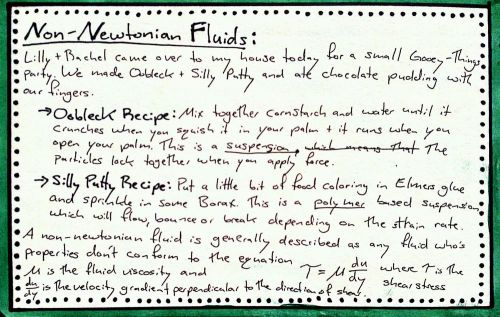 Non-Newtonian Fluids:
Lilly + Rachel came over to my house today for a small Gooey-Things
Party. We made Oobleck + Silly Putty and ate chocolate pudding with
our fingers.
→Oobleck Recipe: Mix together cornstarch and water until it
crunches when you squish it in your palm + it runs when you
open your palm. This is a suspension. which means that The
particles lock together when you apply force.
→Silly Putty Recipe: Put a little bit of food coloring in Elmers glue
and sprinkle in some Borax. This is a polymer based suspension,
which will flow, bounce or break depending on the strain rate.
A non-newtonian fluid is generally described as any fluid who's
properties don't conform to the equation
τ = μ du/dy where τ is the shear stress
μ is the fluid viscosity and
du/dy is the velocity gradient perpendicular to the direction of shear.